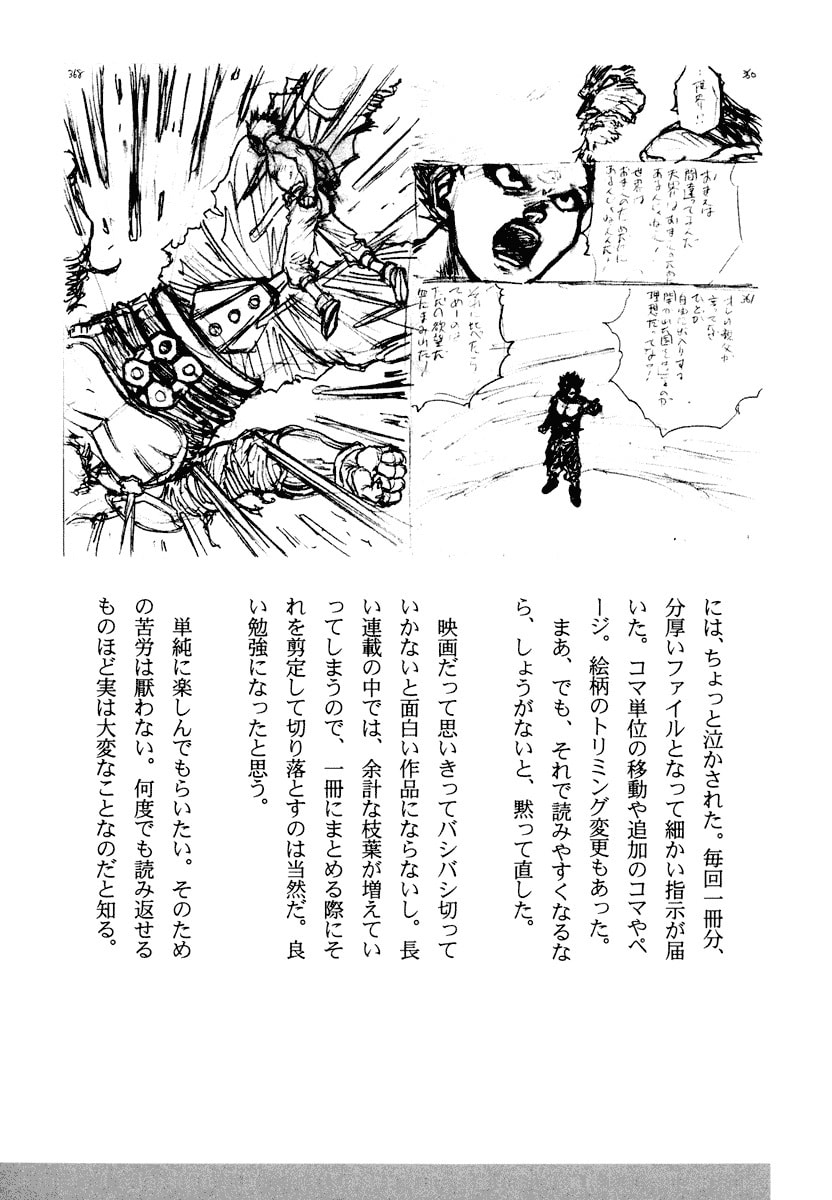 368
360
おまえは
間違ってんだ
世界は
361
オレの親父が
言ってた
ひとが
自由に出入りする
理想だってなっ!
それに比べたら
てめーのは
ただの欲望だ
には、ちょっと泣かされた。毎回一冊分、
分厚いファイルとなって細かい指示が届
いた。コマ単位の移動や追加のコマやペ
ージ。絵柄のトリミング変更もあった。
まあ、でも、それで読みやすくなるな
ら、しょうがないと、黙って直した。
映画だって思いきってバシバシ切って
いかないと面白い作品にならないし。長
い連載の中では、余計な枝葉が増えてい
ってしまうので、一冊にまとめる際にそ
れを剪定して切り落とすのは当然だ。良
い勉強になったと思う。
単純に楽しんでもらいたい。そのため
の苦労は厭わない。何度でも読み返せる
ものほど実は大変なことなのだと知る。